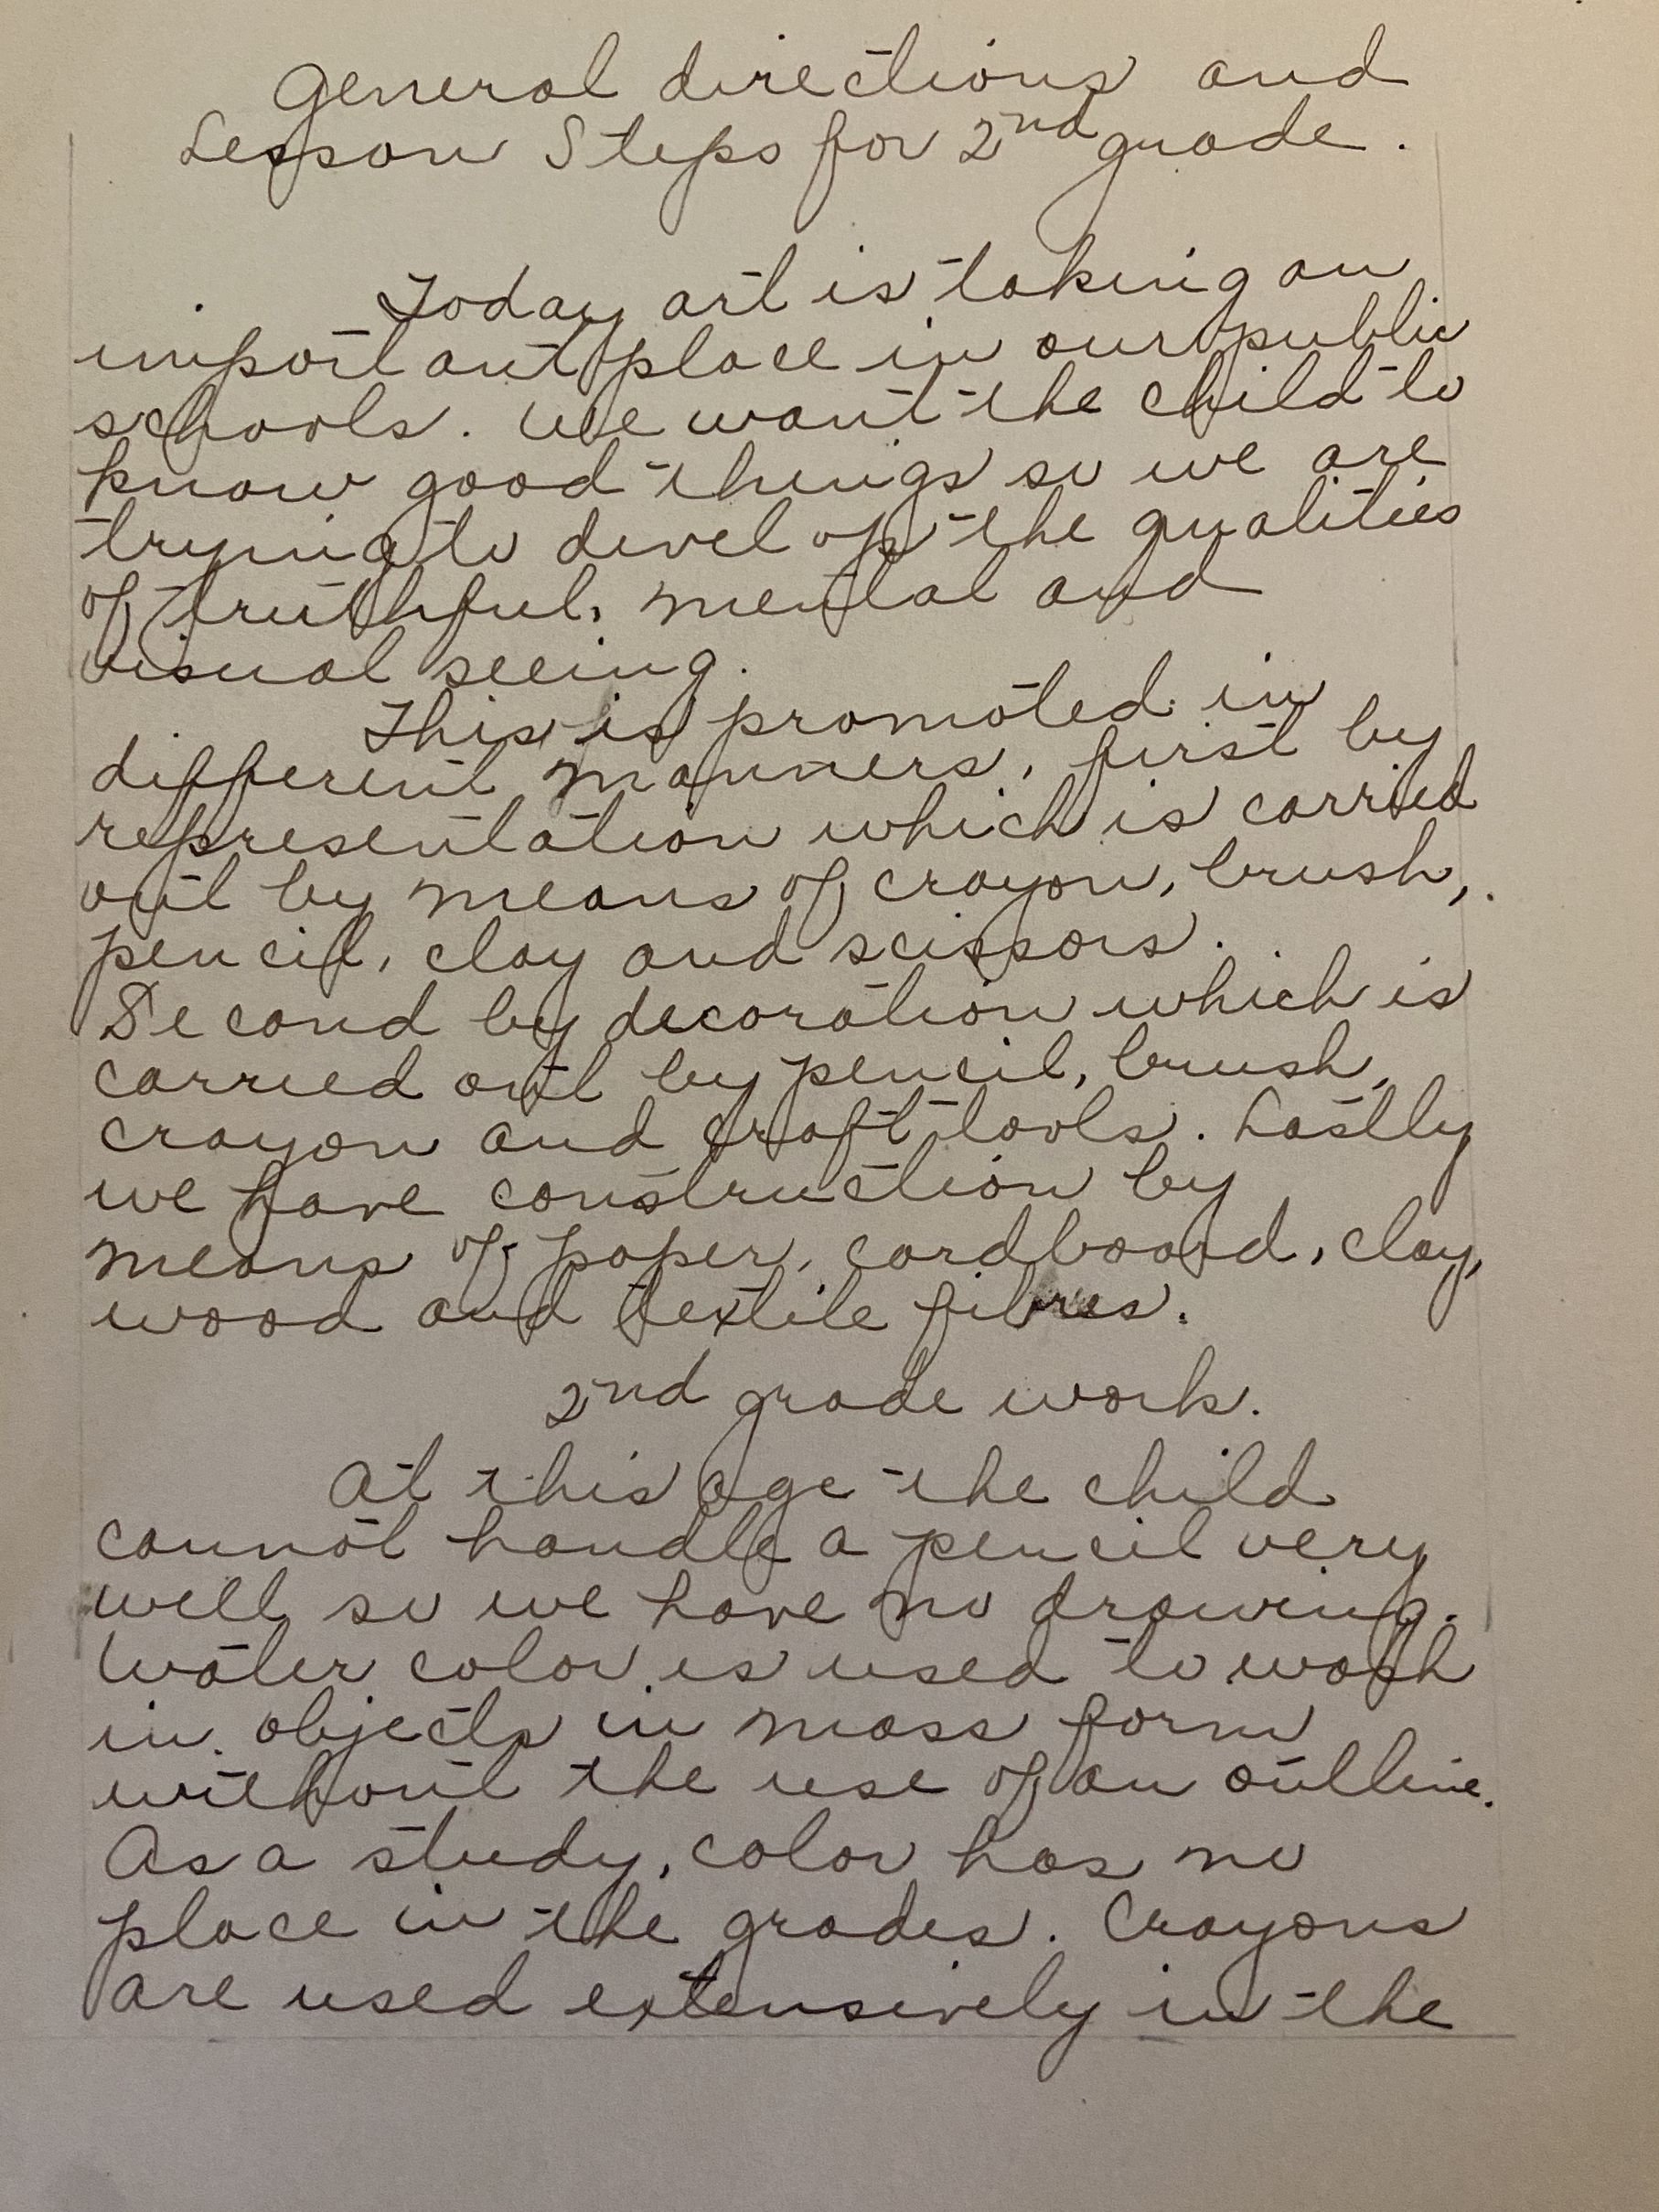 General directions and
Lesson Steps for 2nd grade.
Today art is taking an
important place in our public
schools. We want the child to
know good things so we are
trying to develop the qualities
of truthful, mental and
visual seeing.
This is promoted in
different manners, first by
representation which is carried
out by means of crayon, brush,
pencil, clay and scissors.
Second by decoration which is
carried out by pencil, brush,
crayon and craft tools. Lastly
we have construction by
means of paper, cardboard, clay,
wood and textile fibres.
2nd grade work.
At this age the child
cannot handle a pencil very
well so we have no drawing.
Water color is used to wash
in objects in mass form
without the use of an outline.
As a study, color has no
place in the grades. Crayons
are used extensively in the